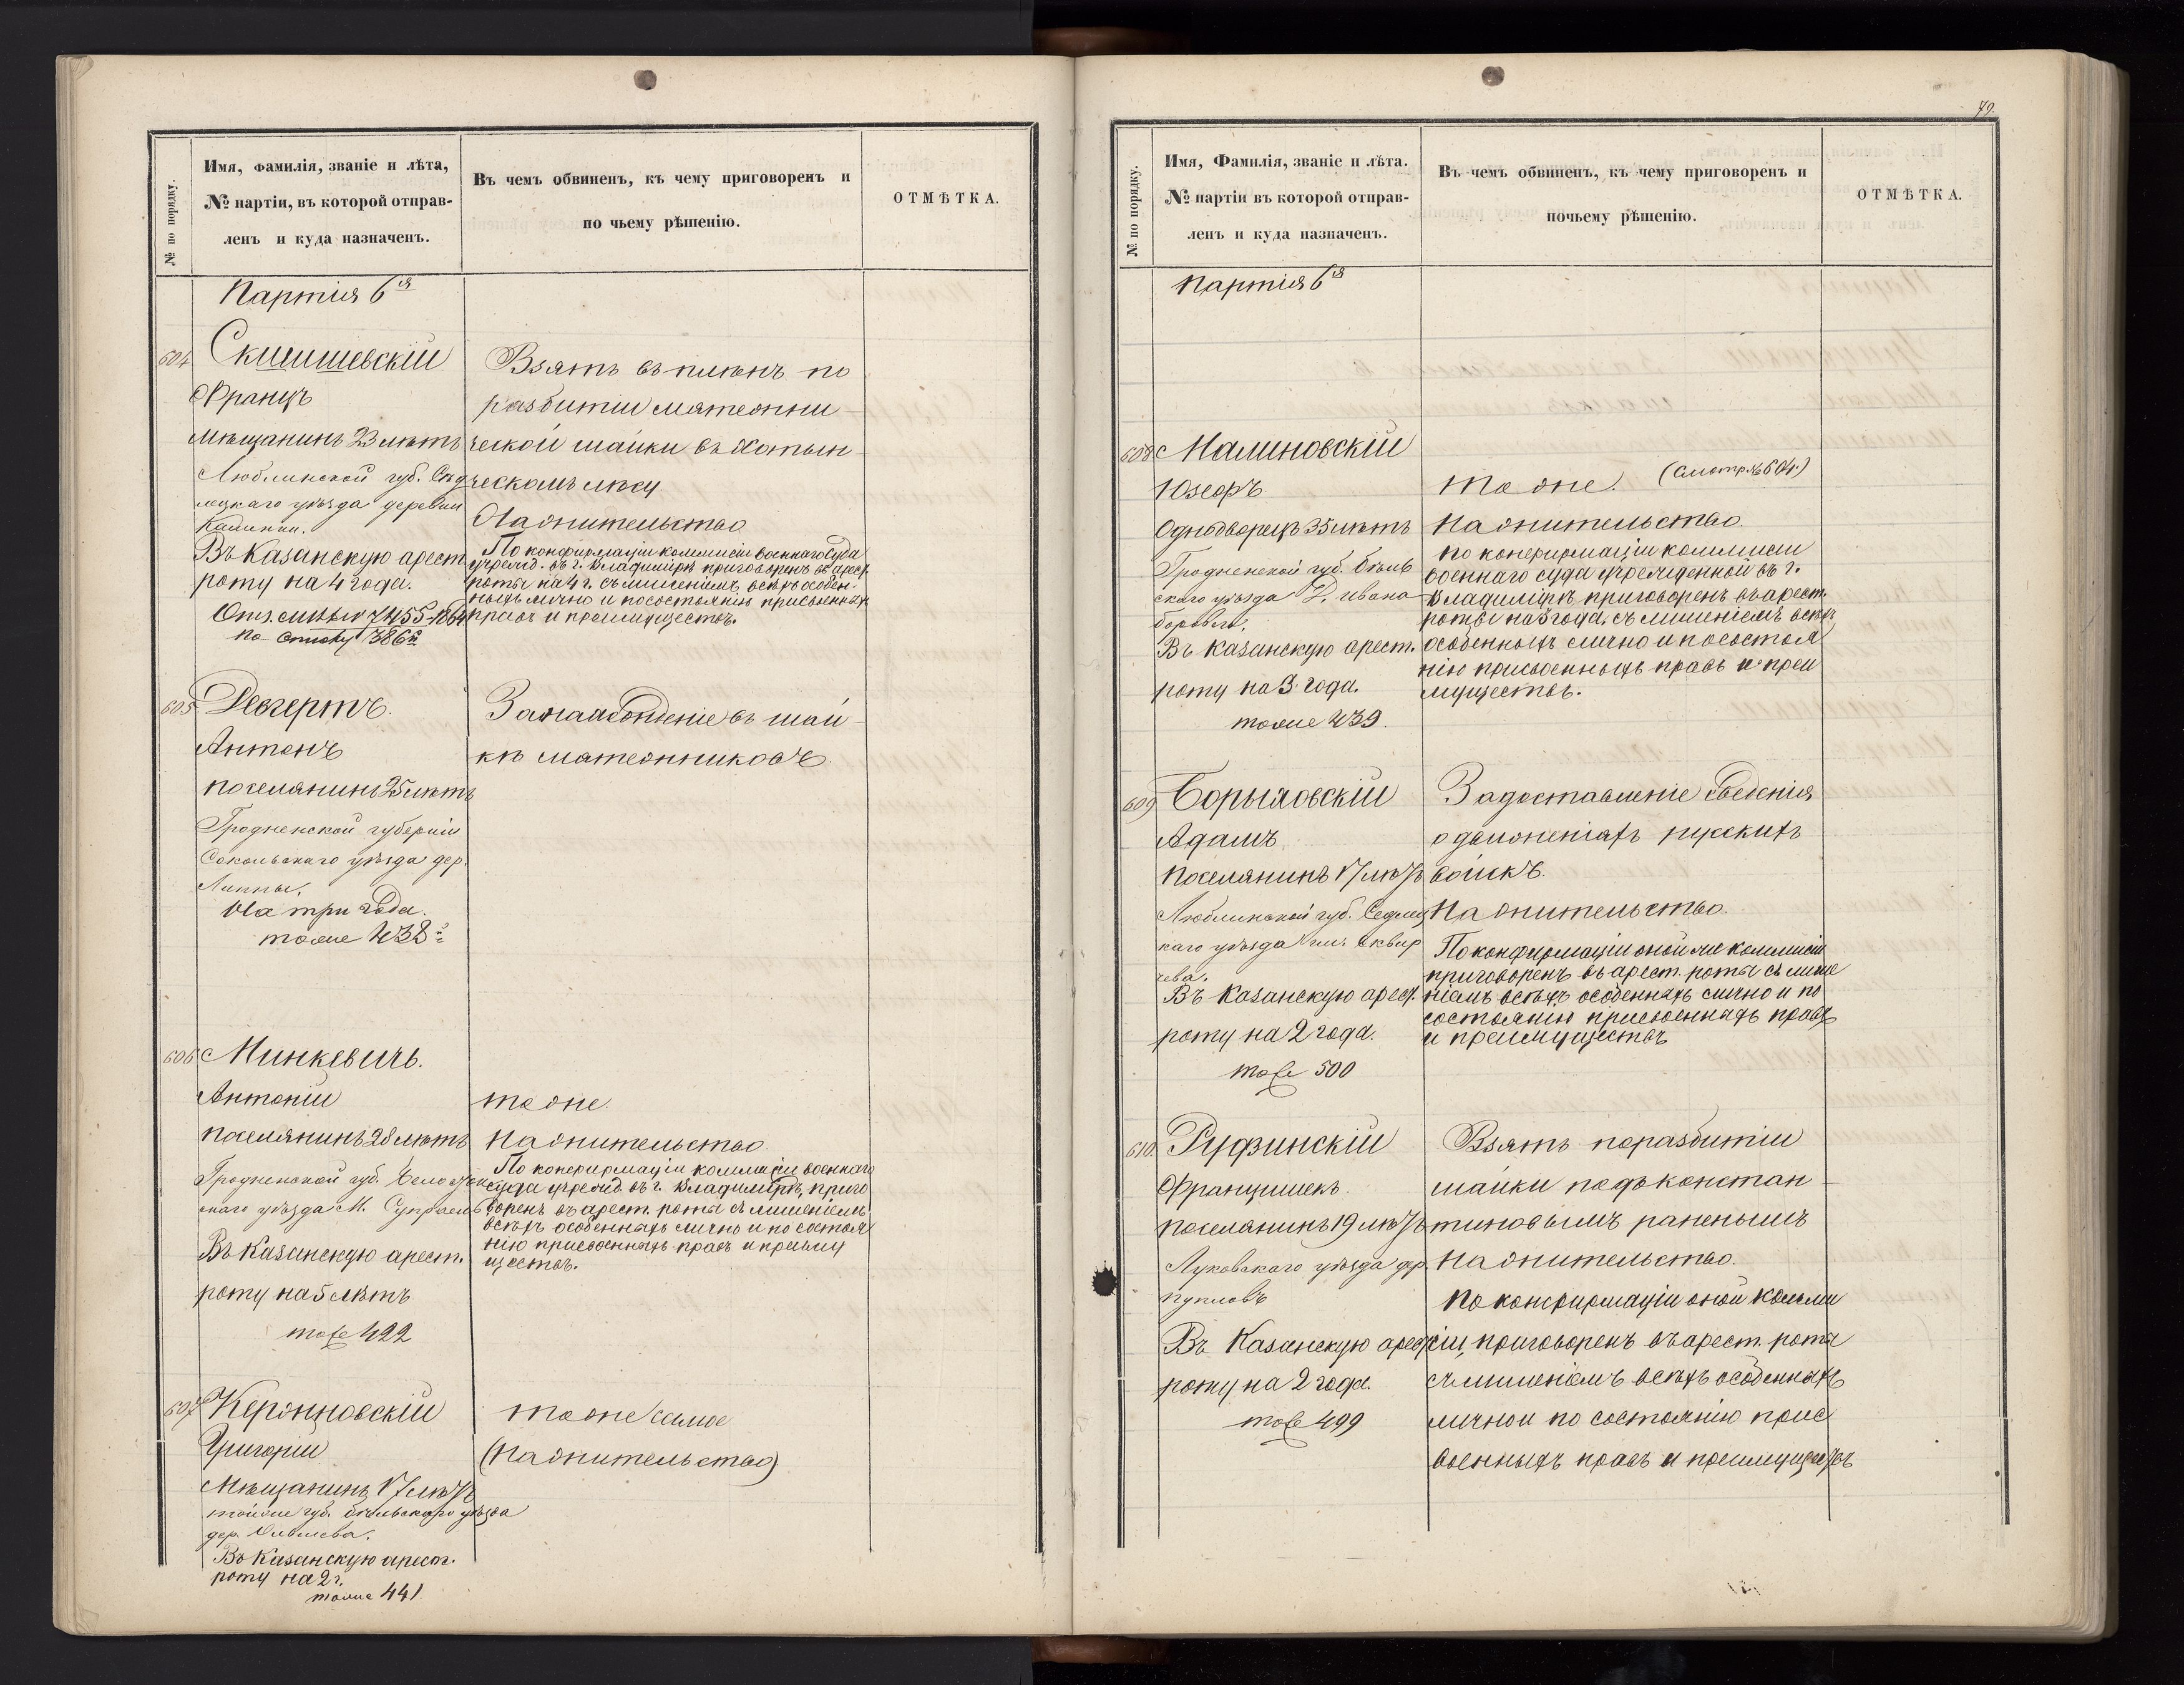 № по порядку.
Имя, фамилія, званіе и лѣта,
№ партіи, въ которой отправ-
ленъ и куда назначенъ.
Въ чемъ обвиненъ, къ чему приговоренъ и
по чьему рѣшенію.
ОТМѢТКА.
Партія 6я
604
Франць
Мѣщанинъ 23 лѣтъ
Люблинской губ. Сѣд
лецкаго уѣзда деревни
Въ Казанскую арест.
роту на 4 года.
7455-1864
по списку 386
Взятъ въ плѣнъ по
разбитіи мятежни-
ческой шайки въ
ческомъ лѣсу.
На жительство
По конфирмаціи коммисіи военнаго суда
учрежд. въ г. Владимірѣ приговоренъ въ арест.
роты на 4 г. съ лишеніемъ всѣхъ особен-
ныхъ лично и по состоянію присвоенныхъ
правъ и преимуществъ.
605
Антонъ
поселянинъ 25 лѣтъ
Гродненской губерніи
Сокольскаго уѣзда дер.
Липны.
На три года.
тоже 438
За нахожденіе въ шай-
кѣ мятежниковъ.
606
Минкевичъ.
Антоній
поселянинъ 28 лѣтъ
Гродненской губ. Белосток
скаго уѣзда М. Супрасль
Въ Казанскую арест.
роту на 5 лѣтъ
тоже 422
тоже.
на жительство
По конфирмаціи коммисіи военнаго
суда учрежд. въ г. Владимірѣ, приго
воренъ въ арест. роты съ лишеніемъ
всѣхъ особенныхъ лично и по состоя
нію присвоенныхъ правъ и преиму
ществъ.
607
Григорій
Мѣщанинъ 17 лѣтъ
тойже губ. Бѣльскаго уѣзда
Въ Казанскую арест.
роту на 2 г.
тоже 441.
тоже самое
(на жительство)
79.
№ по порядку.
Имя, Фамилія, званіе и лѣта.
№ партіи въ которой отправ-
ленъ и куда назначенъ.
Въ чемъ обвиненъ, къ чему приговоренъ и
почьему рѣшенію.
ОТМѢТКА.
Партія 6я
608
Малиновскій
Юзефъ
Однодворецъ 35 лѣтъ
Гродненской губ. Бѣль
скаго уѣзда Д. Ивана
Въ Казанскую арест.
роту на 3 года.
тоже 439.
тоже. (Смотр. № 604.)
на жительство.
по конфирмаціи коммисіи
военнаго суда учрежденной въ г.
Владимірѣ, приговоренъ въ арест.
роты на 3 года, съ лишеніемъ всѣхъ
особенныхъ лично и по состоя
нію присвоенныхъ правъ и преи
муществъ.
609
Адамъ
поселянинъ 17 лѣтъ
Люблинской губ. Седлец
каго уѣзда
Въ Казанскую арест.
роту на 2 года.
тоже 500
За доставленіе сведенія
о движеніяхъ русскихъ
войскъ.
На жительство.
По конфирмаціи оной же коммисіи
приговоренъ въ арест. роты съ лише
ніемъ всѣхъ особенныхъ лично и по
состоянію присвоенныхъ правъ
и преимуществъ
610.
Руфинскій
Францишекъ.
поселянинъ 19 лѣтъ
Луковскаго уѣзда дер.
Въ Казанскую арест.
роту на 2 года.
тоже 499
Взятъ по разбитіи
шайки подъ констан-
тиновымъ раненымъ
на жительство.
по конфирмаціи оной комми
сіи, приговоренъ въ арест. роты
съ лишеніемъ всѣхъ особенныхъ
лично и по состоянію прис
военныхъ правъ и преимуществъ